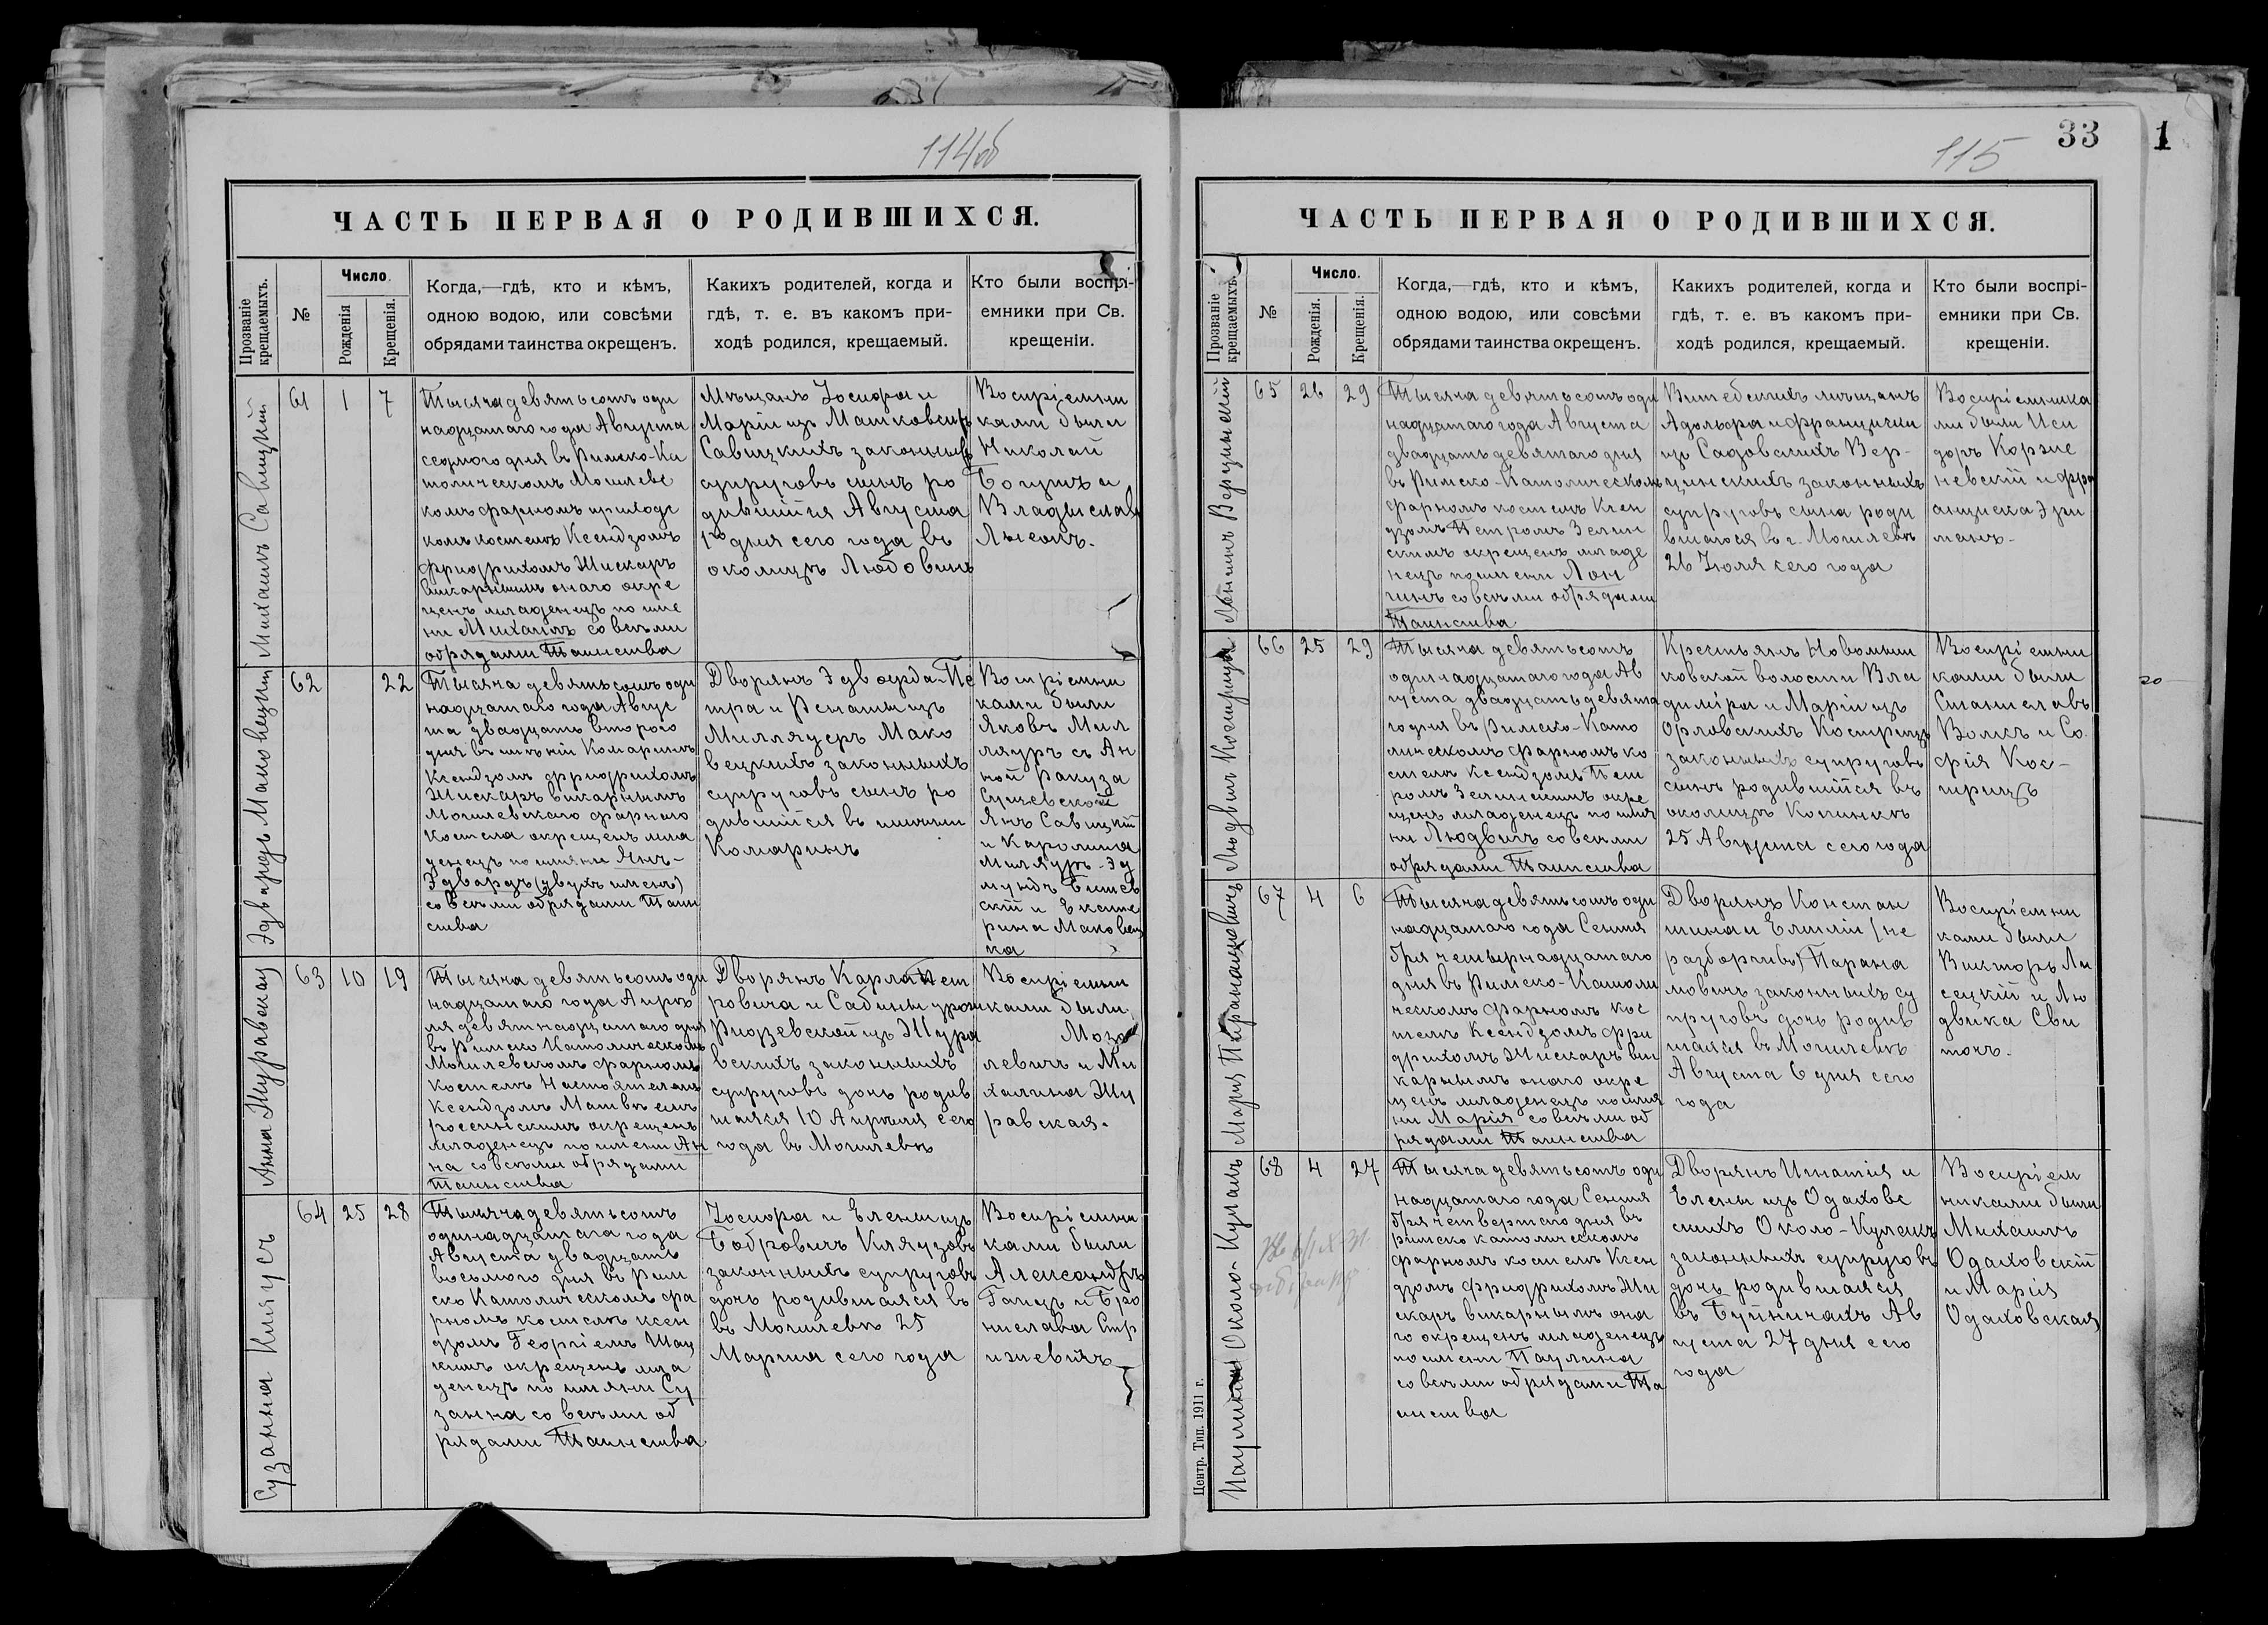 114об
ЧАСТЬ ПЕРВАЯ О РОДИВШИХСЯ.
Прозваніе крещаемыхъ.
№
Число.
Рожденія
Крещенія.
Когда,—гдѣ, кто и кѣмъ,
одною водою, или совсѣми
обрядами таинства окрещенъ.
Какихъ родителей, когда и
гдѣ, т. е. въ какомъ при-
ходѣ родился, крещаемый.
Кто были воспрі-
емники при Св.
крещеніи.
Михаилъ Савицкій
61
1
7
Тысяча девятьсотъ оди
надцатаго года Августа
седмого дня въ Римско-Ка
толическомъ Могилевс
комъ фарномъ приходс
комъ костелѣ Ксендзомъ
Фридрихомъ Жискаръ
викарнымъ онаго окре
щенъ младенецъ по име
ни Михаилъ со всѣми
обрядами Таинства
Мѣщанъ Іосифа и
Маріи изъ Машковскихъ
Савицкихъ законныхъ
супруговъ сынъ ро
дившійся Августа
1го дня сего года въ
околицѣ Любовинѣ
Воспріемни
ками были
Николай
Богушъ и
Владислав
Эдвардъ Маковецкій
62
22
Тысяча девятьсотъ оди
надцатаго года Авгус
та двадцать второго
дня въ имѣніи Комаринѣ
Ксендзомъ Фридрихомъ
Жискаръ викарнымъ
Могилевскаго фарнаго
костела окрещенъ мла
денецъ по имяни Янъ-
Эдвардъ (двухъ именъ)
со всѣми обрядами Таин
ства
Дворянъ Эдварда-Пе
тра и Ренаты изъ
Миллязеръ Мако
вецкихъ законныхъ
супруговъ сынъ ро
дившійся въ имѣніи
Комаринъ
Воспріемни
ками были
Яковъ Мил
лязръ съ Ан
ной Ракуза
Сущевской
Янъ Савицкій
и Каролина
Милязръ-Эд
мундъ
скій и Екате
рина Маковец
ка
Анна Журавская
63
10
19
Тысяча девятьсотъ оди
надцатаго года Апрѣ
ля девятнадцатаго дня
въ Римско Католическомъ
Могилевскомъ фарномъ
костелѣ Настоятелемъ
Ксендзомъ Матвѣемъ
россинскимъ окрещенъ
младенецъ по имени Ан
на со всѣми обрядами
Таинства
Дворянъ Карла Пет
ровича и Сабины урож
Рюдзевской изъ Жура
вскихъ законныхъ
супруговъ дочь родив
шаяся 10 Апрѣля сего
года въ Могилевѣ
Воспріемни
ками были
Моза
левичъ и Ми
халина Жу
равская.
Сузанна Клягусъ
64
25
28
Тысяча девятьсотъ
одинадцатаго года
Августа двадцать
восьмого дня въ Рим
ско Католическомъ фа
рномъ костелѣ ксен
дзомъ Георгіемъ Шац
кимъ окрещенъ мла
денецъ по имяни Су
занна со всѣми об
рядами Таинства
Іосифа и Елены изъ
Бобровичъ Клягузовъ
законныхъ супруговъ
дочь родившаяся въ
въ Могилевѣ 25
Марта сего года
Воспріемни
ками были
Александръ
Ганцъ и Бро
нислава Стр
ижевичъ
33
1
115
ЧАСТЬ ПЕРВАЯ О РОДИВШИХСЯ.
Прозваніе крещаемыхъ.
№
Число.
Рожденія.
Крещенія.
Когда,—гдѣ, кто и кѣмъ,
одною водою, или совсѣми
обрядами таинства окрещенъ.
Какихъ родителей, когда и
гдѣ, т. е. въ какомъ при-
ходѣ родился, крещаемый.
Кто были воспрі-
емники при Св.
крещеніи.
Лонгинъ Верцинскій
65
26
29
Тысяча девятьсотъ оди
надцатаго года Августа
двадцать девятаго дня
въ Римско-Католическомъ
фарномъ костелѣ Ксен
дзомъ Петромъ Зелин
скимъ окрещенъ младе
нецъ по имени Лон
гинъ со всѣми обрядами
Таинства
Витебскихъ мѣщанъ
Адольфа и Францишки
изъ Садовскихъ Вер-
цинскихъ законныхъ
супруговъ сына роди
вшагося въ г. Могилевѣ
26 Іюля сего года
Воспріемника
ми были Иси
доръ Корзе
невскій и Фра
нциска Эри
манъ.
Людвигъ Кострица
66
25
29
Тысяча девятьсотъ
одинадцатаго года Ав
густа двадцать девята
го дня въ Римско-Като
лическомъ фарномъ ко
стелѣ Ксендзомъ Пет
ромъ Зелинскимъ окре
щенъ младенецъ по имя
ни Людвигъ со всѣми
обрядами Таинства
Крестьянъ Новомыш
ковской волости Вла
диміра и Маріи изъ
Орловскихъ Кострицъ
законныхъ супруговъ
сынъ родившійся въ
околицѣ Копинкѣ
25 Августа сего года
Воспріемни
ками были
Станиславъ
Волкъ и Со
фія Кос-
трицъ
20
Марія Тарнамовичъ
67
4
6
Тысяча девятьсотъ оди
надцатаго года Сентя
бря четырнадцатаго
дня въ Римско-Катол
ческомъ фарномъ кос
телѣ Ксендзомъ Фри
дрихомъ Жискаръ ви
карнымъ онаго окре
щенъ младенецъ по имя
ни Марія со всѣми об
рядами Таинства
Дворянъ Констан
тина и Емиліи (не
разборчиво) Тарана
мовичъ законныхъ су
пруговъ дочь родив
шаяся въ Могилевѣ
Августа 6 дня сего
года
Воспріемни
ками были
Викторъ Ли
сецкій и Лю
двика Сви
точъ.
Паулина Около-Кулакъ
68
4
27
Тысяча девятьсотъ оди
надцатаго года Сентя
бря четвертаго дня въ
римско католическомъ
фарномъ костелѣ Ксен
дзомъ Фридрихомъ Жи
скаръ викарнымъ она
го окрещенъ младенецъ
по имени Паулина
со всѣми обрядами Та
инства
Дворянъ Игнатія и
Елены изъ Одаховс
кихъ Около-Кулакъ
законныхъ супруговъ
дочь родившаяся
въ Буйничахъ Ав
густа 27 дня сего
года
Воспріем
никами были
Михаилъ
Одаховскій
и Марія
Одаховская
Центр. Тип. 1911 г.